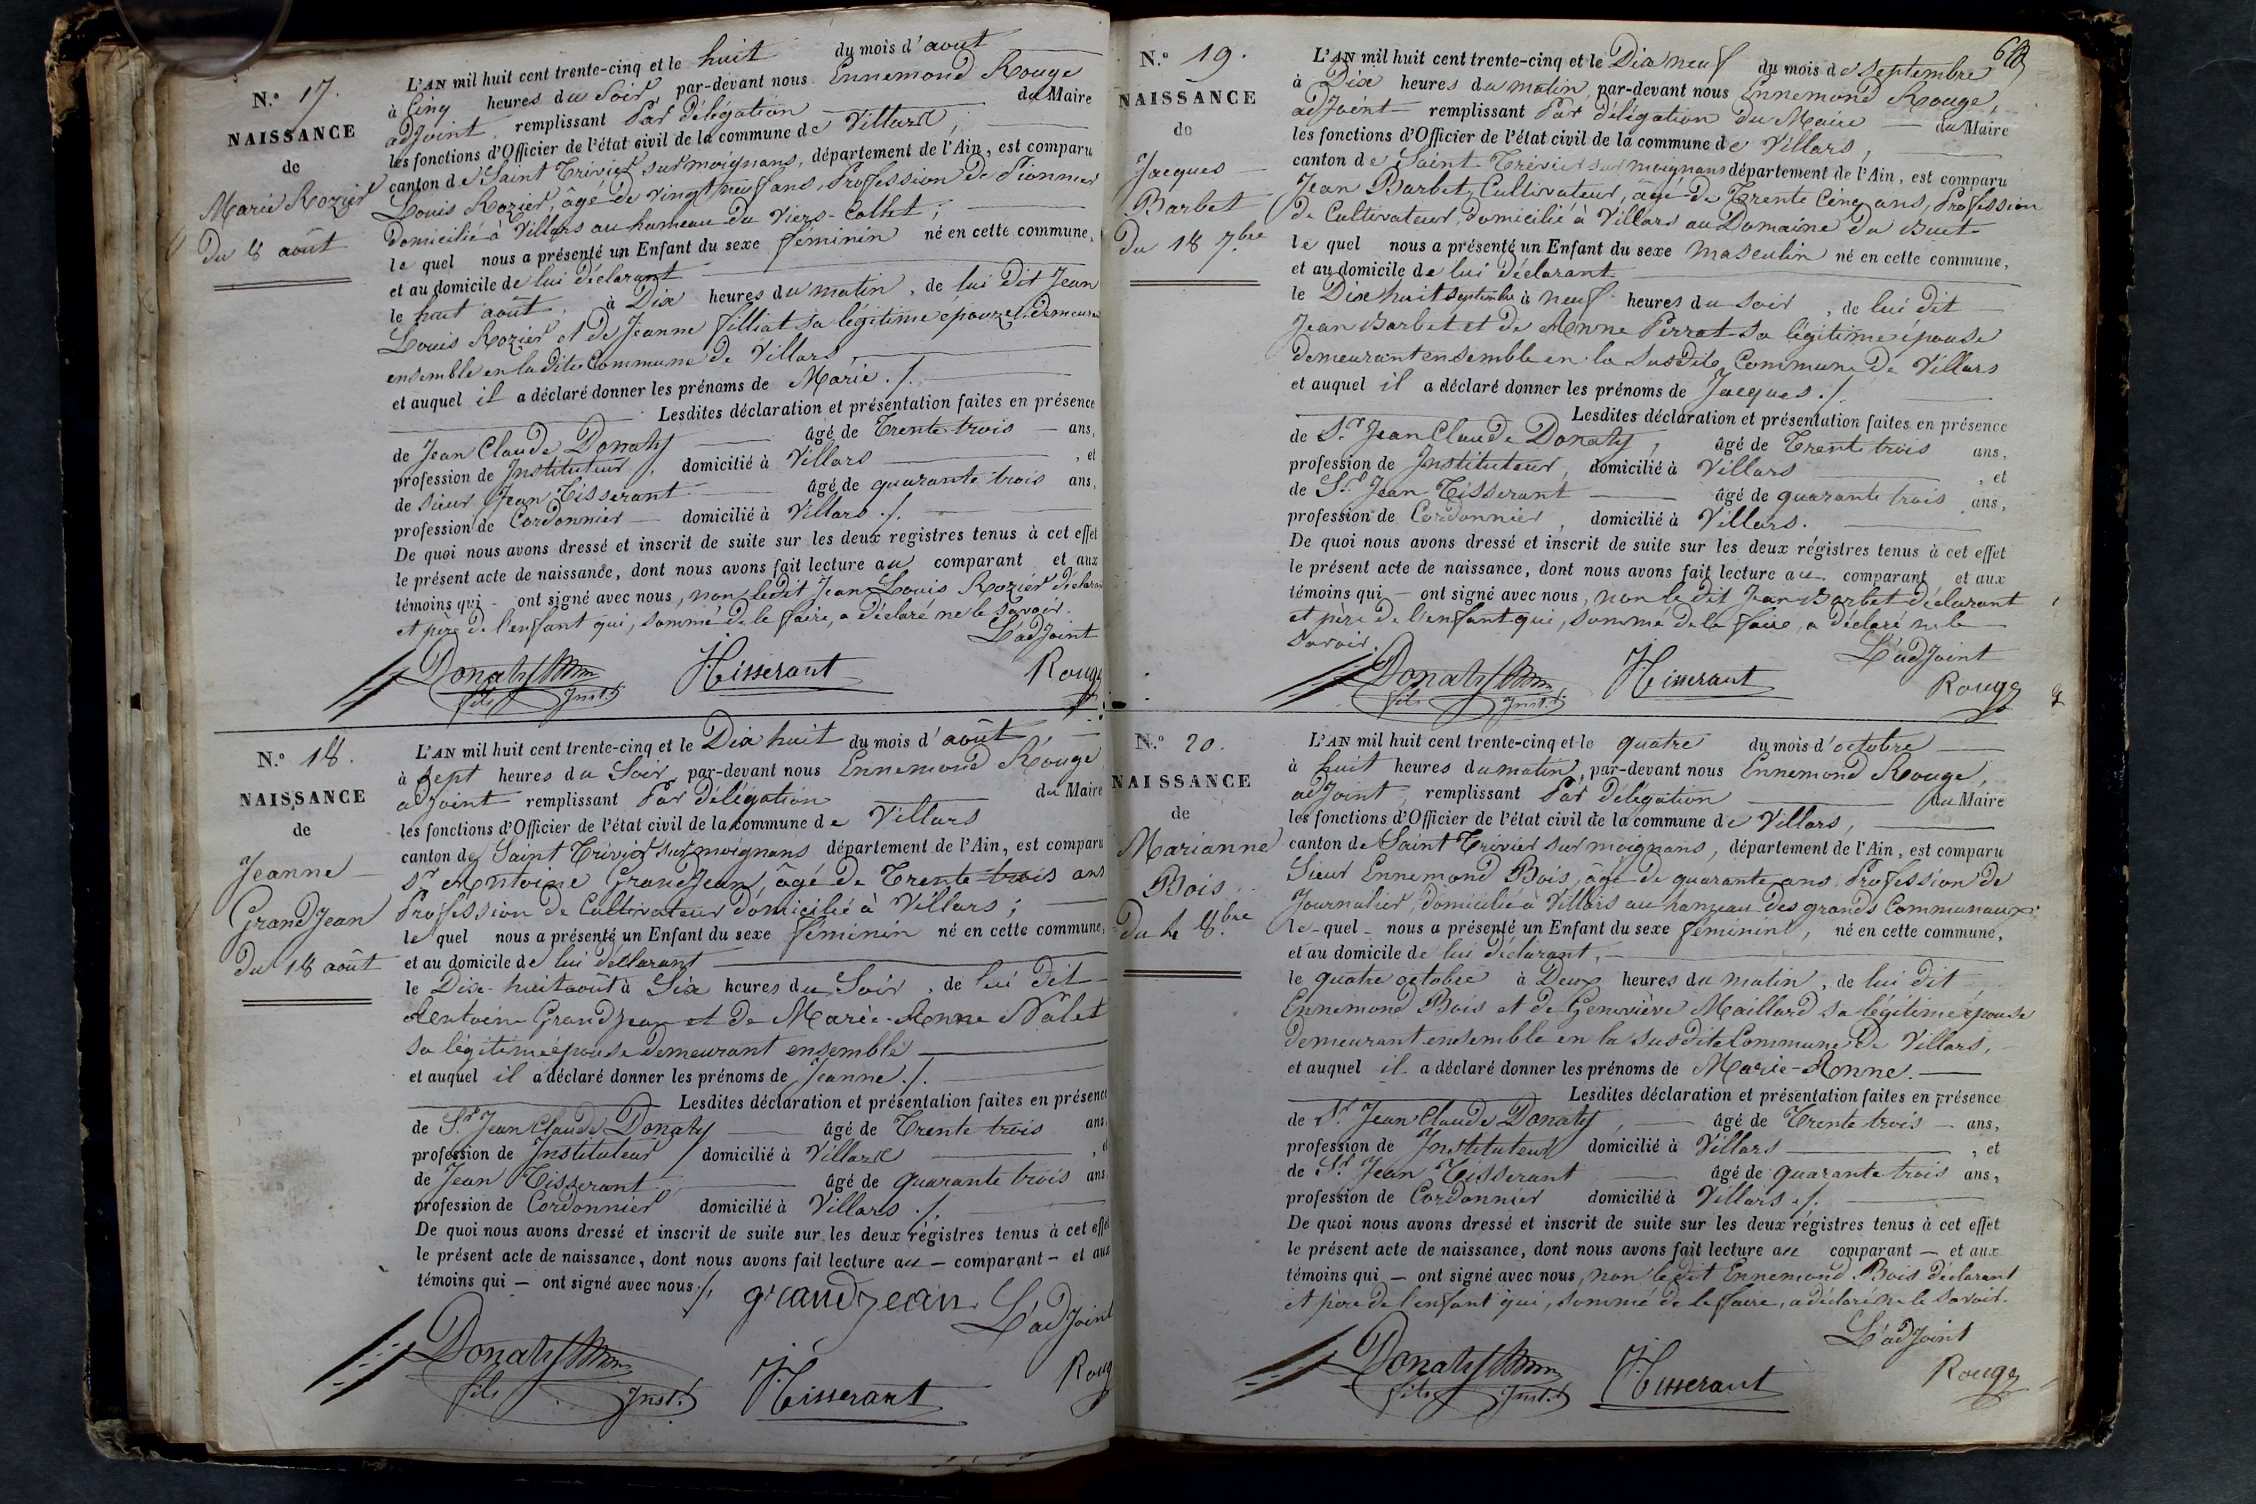 N.° 17.
NAISSANCE
de
Marie Rozier
Du 8 août
L'AN mil huit cent trente-cinq et le huit du mois d'aout
à Cinq heures du Soir par-devant nous Ennemond Rouge
adjoint, remplissant Par délégation du Maire
les fonctions d'Officier de l'état civil de la commune de Villars,
canton de Saint Trivier sur moignans, département de l'Ain, est comparu
Louis Rozier, âgé de vingt neuf ans, Profession de Pionnier
Domicilié à Villars au hameau du Viers-Collet;
le quel nous a présenté un Enfant du sexe féminin né en cette commune,
et au domicile de lui déclarant
le huit août, à Dix heures du matin, de lui dit Jean
Louis Rozier et de Jeanne filliat sa légitime épouze Demeurant
ensemble en la dite Commune de Villars,
et auquel il a déclaré donner les prénoms de Marie ./.
Lesdites déclaration et présentation faites en présence
de Jean Claude Donaty âgé de Trente trois — ans,
profession de Instituteur, domicilié à Villars , et
de sieur Jean Tisserant âgé de quarante trois ans,
profession de Cordonnier — domicilié à Villars ./.
De quoi nous avons dressé et inscrit de suite sur les deux registres tenus à cet effet
le présent acte de naissance, dont nous avons fait lecture au comparant et aux
témoins qui - ont signé avec nous, non ledit Jean Louis Rozier déclarant
et père de l'enfant qui, sommé de le faire, a déclaré ne le savoir.
L'adjoint
Donaty
fils Inst.r
JTisserant
Rouge
N.° 18.
NAISSANCE
de
Jeanne
GrandJean
Du 18 août
L'AN mil huit cent trente-cinq et le Dix huit du mois d'août
à Sept heures du Soir, par-devant nous Ennemond Rouge
adjoint remplissant Par délégation du Maire
les fonctions d'Officier de l'état civil de la commune de Villars
canton de Saint Trivier sur moignans département de l'Ain, est comparu
Sr Antoine GrandJean, âgé de Trente trois ans
Profession de Cultivateur domicilié à Villars;
le quel nous a présenté un Enfant du sexe féminin né en cette commune,
et au domicile de lui déclarant
le Dix-huit août à Six heures du Soir, de lui dit
Antoine GrandJean et de Marie-Anne Nalet
sa légitime épouse demeurant ensemble
et auquel il a déclaré donner les prénoms de Jeanne ./.
Lesdites déclaration et présentation faites en présence
de S.r Jean Claude Donaty âgé de Trente trois ans,
profession de Instituteur domicilié à Villars , et
de Jean Tisserant âgé de quarante trois ans,
profession de Cordonnier domicilié à Villars ./.
De quoi nous avons dressé et inscrit de suite sur les deux régistres tenus à cet effet
le présent acte de naissance, dont nous avons fait lecture au — comparant — et aux
témoins qui — ont signé avec nous ./.
grandjean
L'adjoint
Donaty
fils Inst.r
JTisserant
Rouge
N.° 19.
NAISSANCE
de
Jacques
Barbet
Du 18 7bre
L'AN mil huit cent trente-cinq et le Dix neuf du mois de septembre
à Dix heures du matin, par-devant nous Ennemond Rouge,
adjoint remplissant Par délégation du Maire — du Maire
les fonctions d'Officier de l'état civil de la commune de Villars,
canton de Saint-Trévier sur moignans département de l'Ain, est comparu
Jean Barbet, Cultivateur, âgé de Trente Cinq ans, Profession
de Cultivateur, domicilié à Villars au Domaine du Buet
le quel nous a présenté un Enfant du sexe masculin né en cette commune,
et au domicile de lui déclarant
le Dix huit septembre à neuf heures du soir, de lui dit
Jean Barbet et de Anne Perrat sa légitime épouse
demeurant ensemble en la susdite Commune de Villars
et auquel il a déclaré donner les prénoms de Jacques ./.
Lesdites déclaration et présentation faites en présence
de S.r Jean Claude Donaty, âgé de Trente trois ans,
profession de Instituteur, domicilié à Villars , et
de S.r Jean Tisserant âgé de quarante trois ans,
profession de Cordonnier, domicilié à Villars.
De quoi nous avons dressé et inscrit de suite sur les deux régistres tenus à cet effet
le présent acte de naissance, dont nous avons fait lecture au comparant et aux
témoins qui — ont signé avec nous, non le dit Jean Barbet déclarant
et père de l'enfant qui, sommé de le faire, a déclaré ne le
savoir.
L'adjoint
Donaty
fils Inst.r
JTisserant
Rouge
N.° 20.
NAISSANCE
de
Marianne
Bois
Du 4 8.bre
L'AN mil huit cent trente-cinq et le quatre du mois d'octobre
à huit heures du matin, par-devant nous Ennemond Rouge,
adjoint, remplissant Par délégation du Maire
les fonctions d'Officier de l'état civil de la commune de Villars,
canton de Saint Trivier sur moignans, département de l'Ain, est comparu
Sieur Ennemond Bois, âgé de quarante ans, Profession de
Journalier, domicilié à Villars au hameau des grands Communaux;
le quel nous a présenté un Enfant du sexe féminint, né en cette commune,
et au domicile de lui déclarant,
le quatre octobre à Deux heures du matin, de lui dit
Ennemond Bois et de Geneviève Maillard sa légitime épouse
demeurant ensemble en la susdite Commune de Villars,
et auquel il a déclaré donner les prénoms de Marie-Anne.
Lesdites déclaration et présentation faites en présence
de S.r Jean Claude Donaty, âgé de Trente trois — ans,
profession de Instituteur domicilié à Villars , et
de S.r Jean Tisserant âgé de quarante trois ans,
profession de Cordonnier domicilié à Villars ./.
De quoi nous avons dressé et inscrit de suite sur les deux régistres tenus à cet effet
le présent acte de naissance, dont nous avons fait lecture au comparant — et aux
témoins qui — ont signé avec nous, non le dit Ennemond Bois déclarant
et père de l'enfant qui, sommé de le faire, a déclaré ne le savoir.
L'adjoint
Donaty
fils Inst.r
JTisserant
Rouge